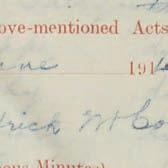 ove-mentioned Acts
une 191
rick W Co
ous Minutes)